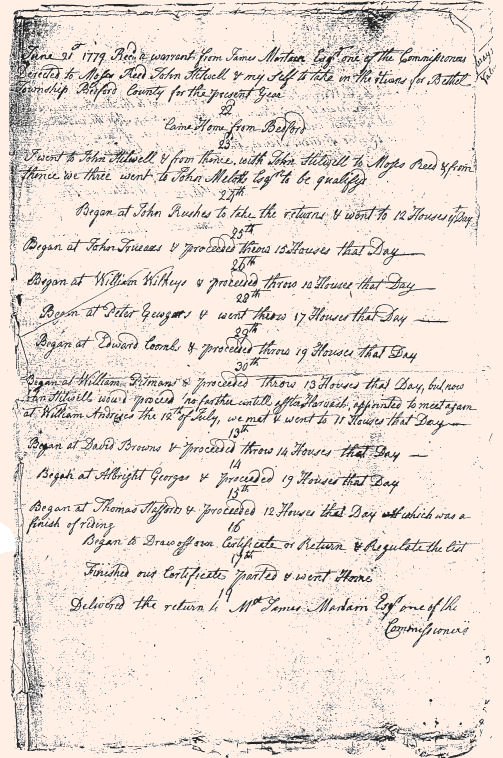 June 21st 1779 Recd a warrant from James Martain Esqr. one of the Commissioners
Directed to Moses Reed John Stilwell & my self to take in the Returns for Bethel
Township Bedford County for the present Year
22d
Came Home from Bedford
23d
I went to John Stilwell & from thence with John Stilwell to Moses Reed & from
thence we three went to John Melotts Esqrs to be qualifyd
24th
Began at John Rushes to take the returns & went to 12 Houses yt Day
25th
Began at John and proceeded throw 15 Houses that Day
26th
Began at William Wilkeys & proceeded throw 10 Houses that Day
28th
Began at Peter & went throw 17 Houses that Day
29th
Began at Edward Coombs & proceeded throw 19 Houses that Day
30th
Began at William Pitmans & proceeded throw 13 Houses that Day, but now
John Stilwell wou'd proceed no farther untill after Harvest, appointed to meet again
at William Andrises the 12th of July, we met & went to 11 Houses that Day
13th
Began at David Browns & proceeded throw 14 Houses that Day
14
Began at Albright Georges & proceeded 19 Houses that Day
15th
Began at Thomas Staffords & proceeded 12 Houses that Day which was a
finish of riding
16
Began to Draw off our Certificate or Return & Regulate the list
17th
Finished our Certificate parted & went Home
19
Delivered the return to Mr James Martain Esqr one of the
Commissioners